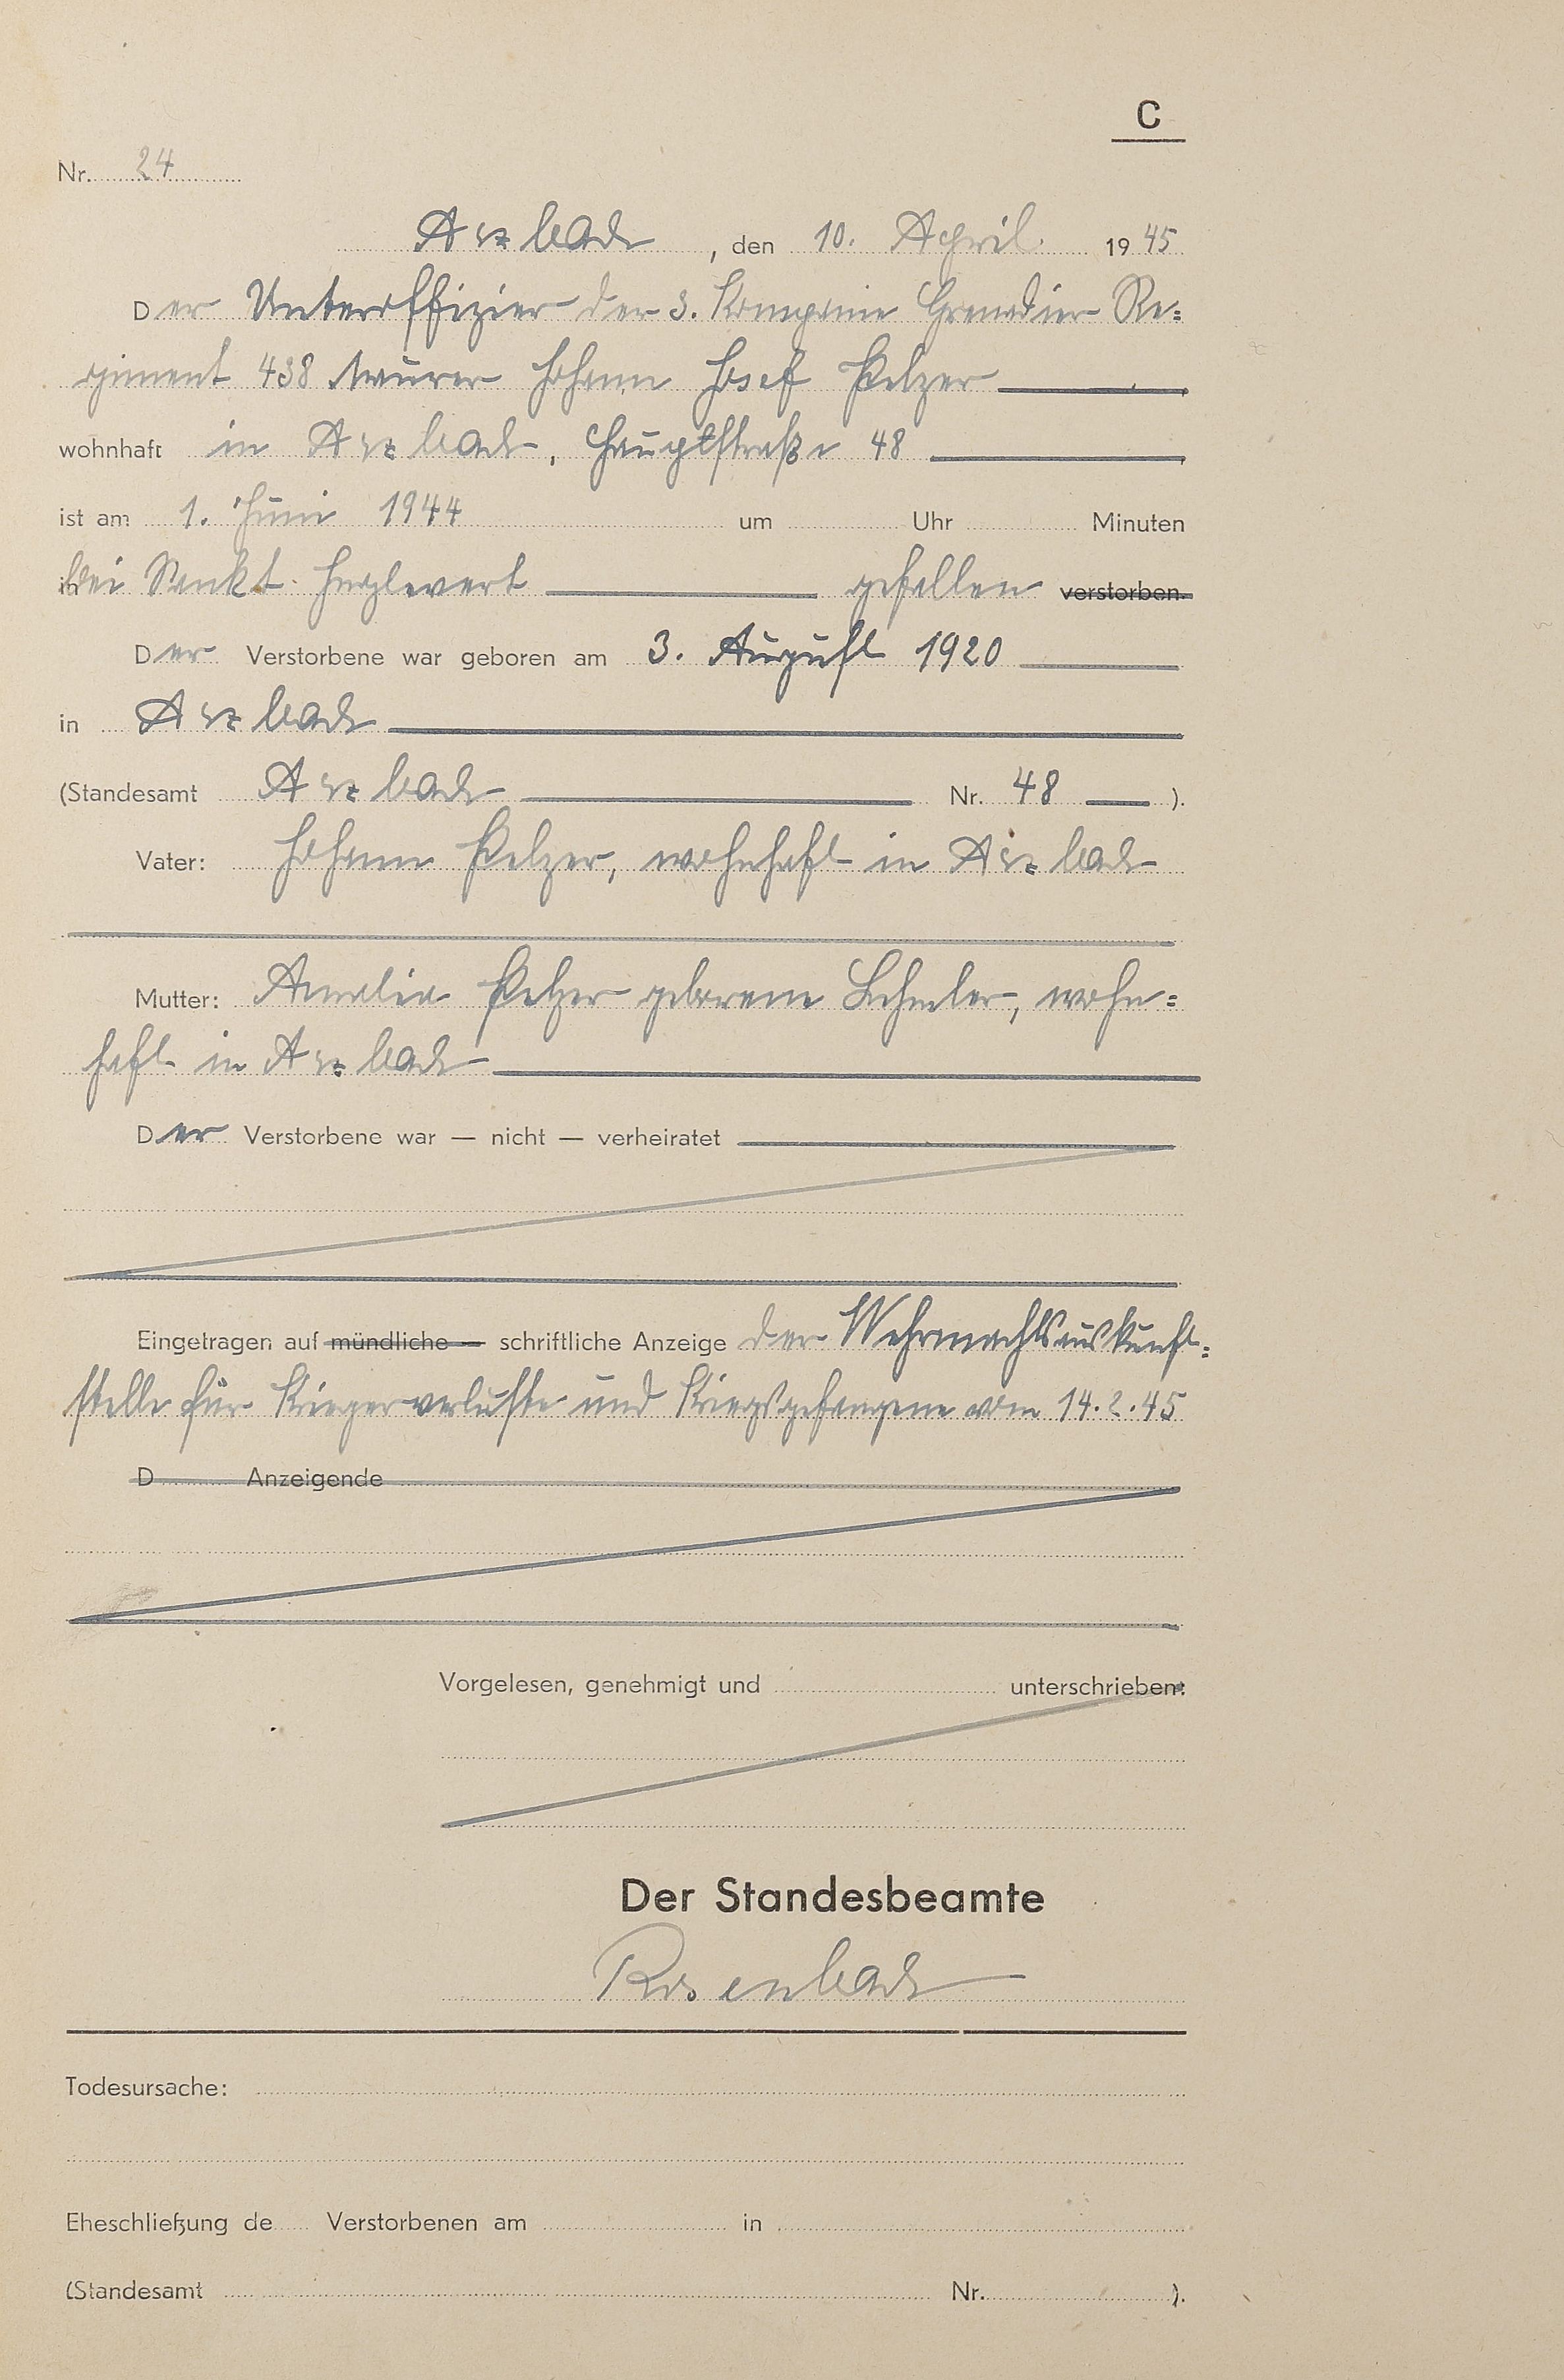 C
Nr. 24
Arzbach, den 10. April 1945
Der Unteroffizier der 3. Kompanie Grenadier-Re=
giment 438 Maurer Johann Josef Pelzer
wohnhaft in Arzbach, Hauptstraße 48
ist am 1. Juni 1944 um Uhr Minuten
bei Sankt. gefallen verstorben.
Der Verstorbene war geboren am 3. August 1920
in Arzbach
(Standesamt Arzbach Nr. 48 ).
Vater: Johann Pelzer, wohnhaft in Arzbach
Mutter: Amalia Pelzer geborene wohn=
haft in Arzbach
Der Verstorbene war — nicht — verheiratet
Eingetragen auf mündliche — schriftliche Anzeige der Wehrmachtsauskunft=
stelle für Kriegerverluste und Kriegsgefangene vom 14.2.45
D Anzeigende
Vorgelesen, genehmigt und unterschrieben:
Der Standesbeamte
Rosenbach
Todesursache:
Eheschließung de Verstorbenen am in
(Standesamt Nr. ).